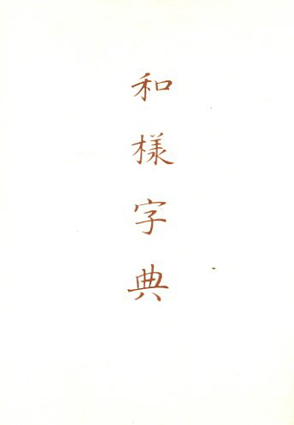 和様字典